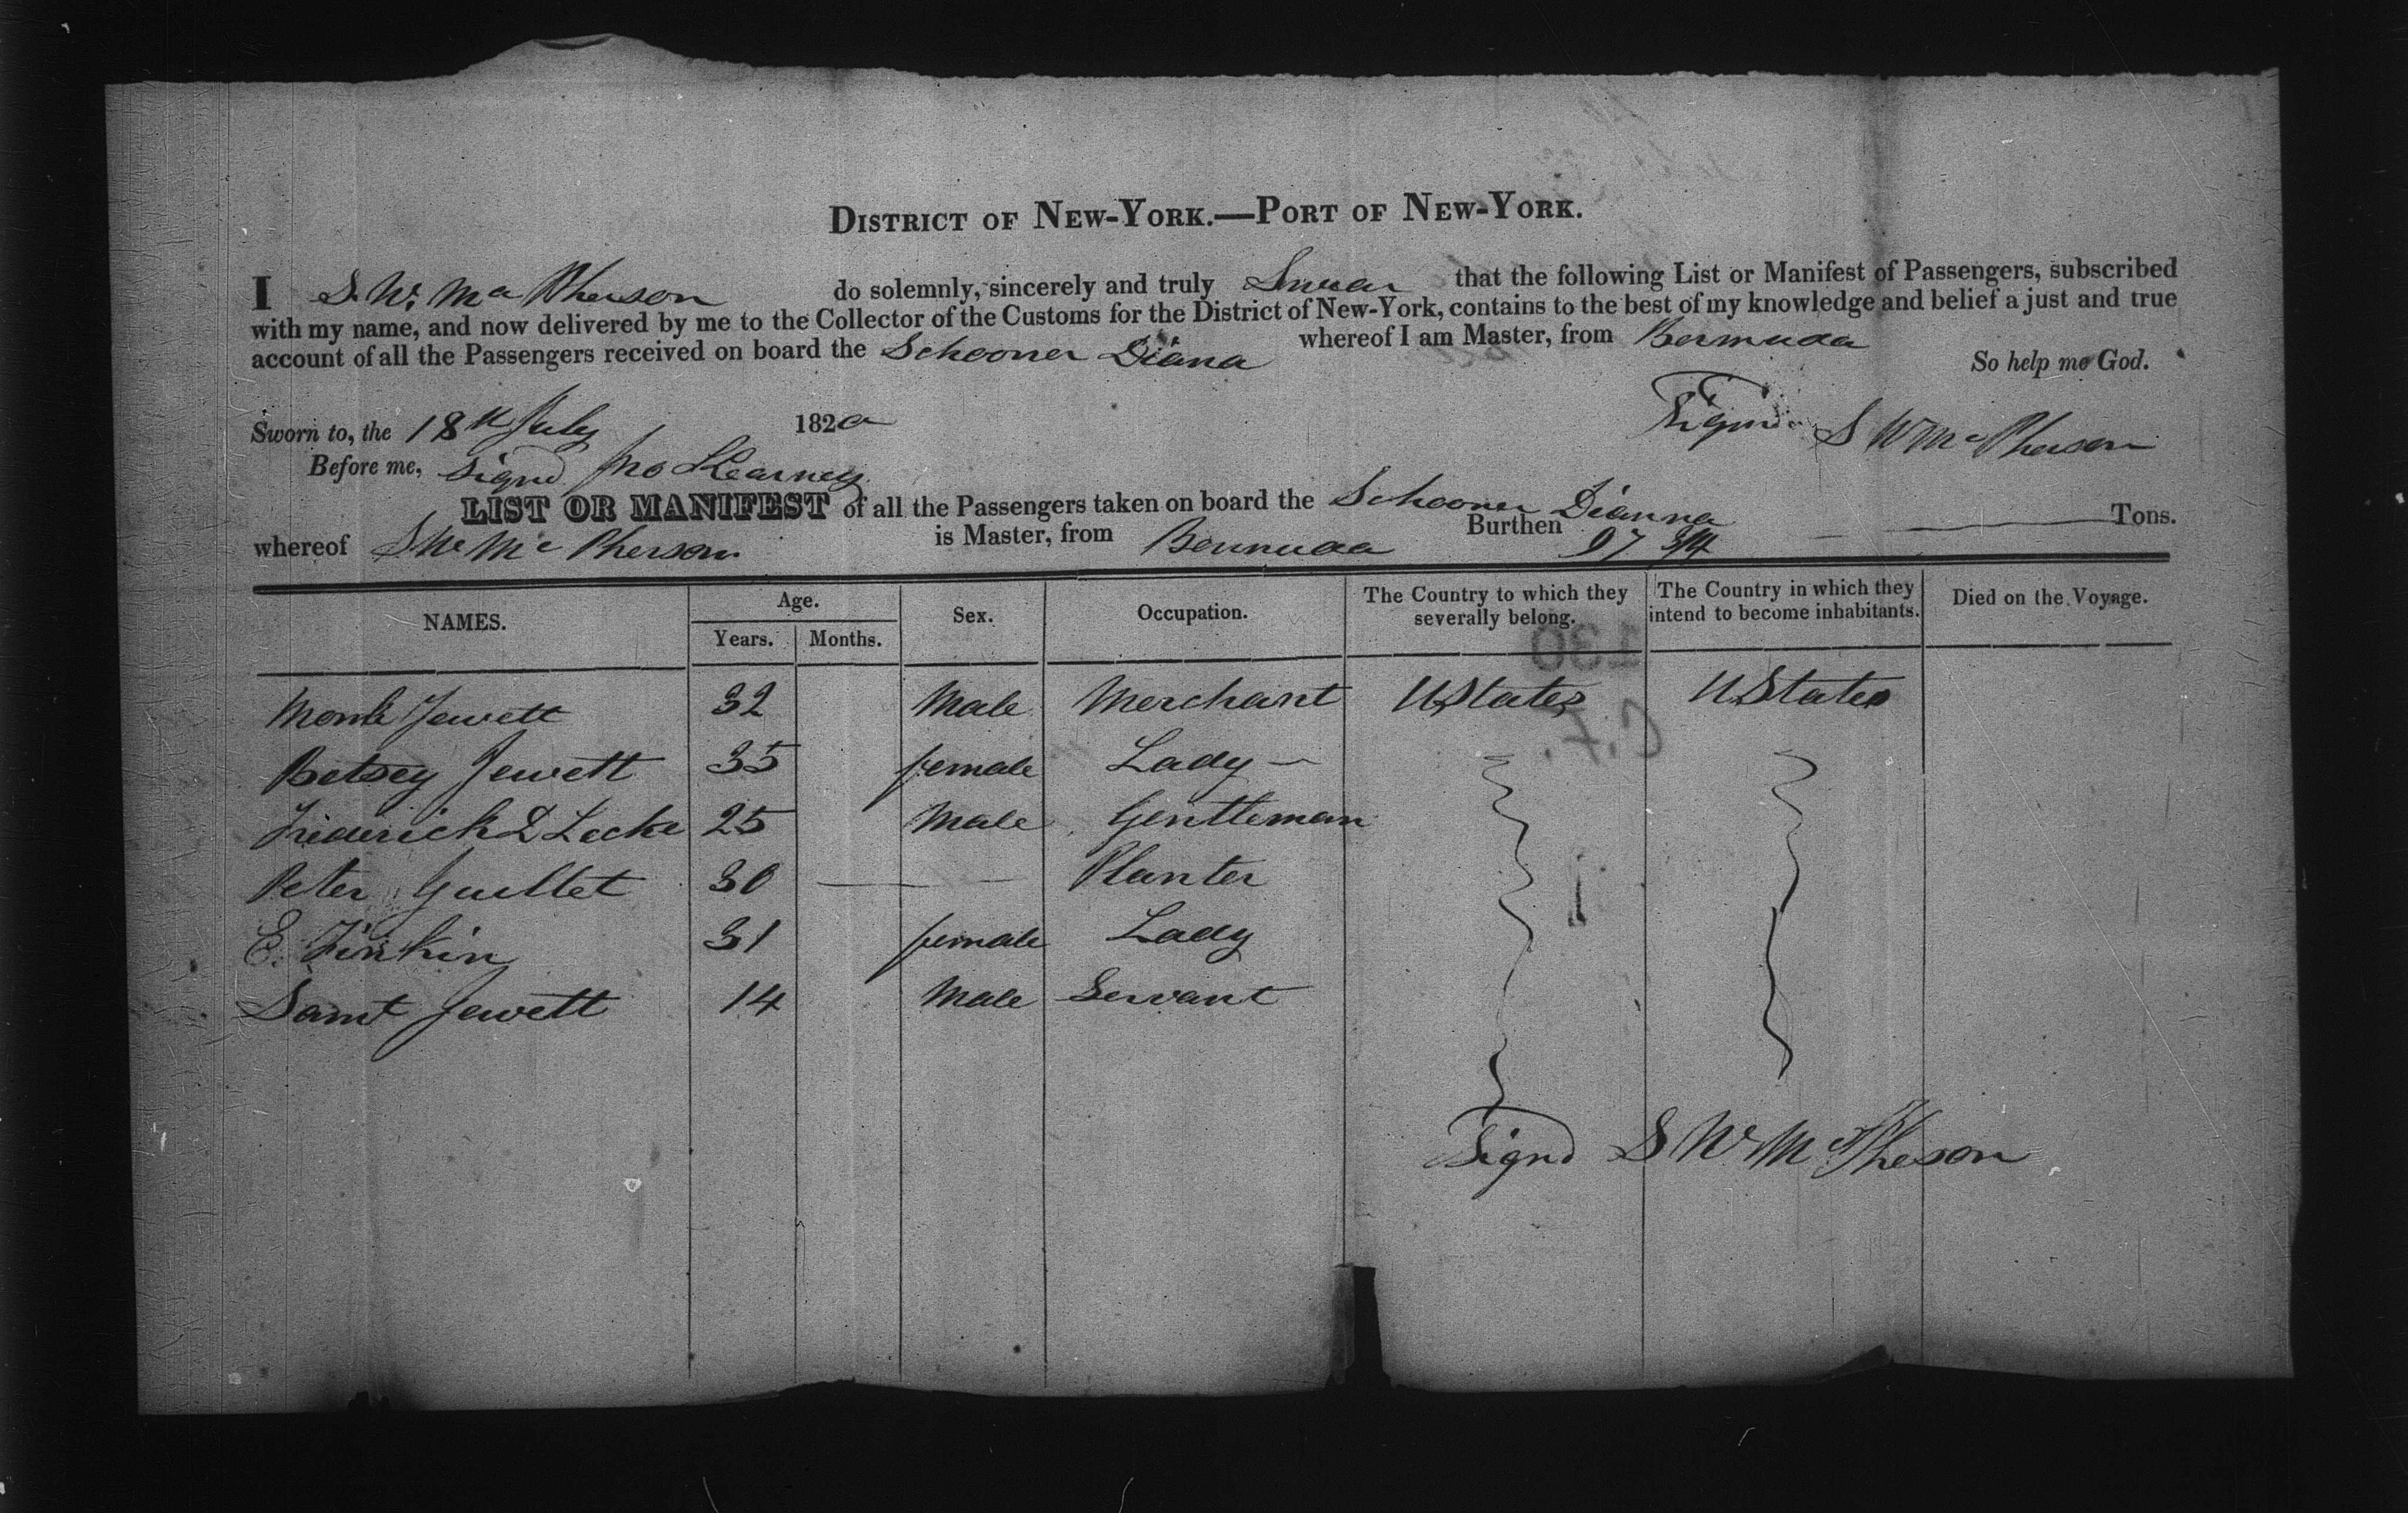 DISTRICT OF NEW-YORK.—PORT OF NEW-YORK.
I S. W. Mc Pherson do solemnly, sincerely and truly Swear that the following List or Manifest of Passengers, subscribed
with my name, and now delivered by me to the Collector of the Customs for the District of New-York, contains to the best of my knowledge and belief a just and true
account of all the Passengers received on board the Schooner Diana whereof I am Master, from Bermuda
So help me God.
Sworn to, the 18th July 1820 Signd S W Mc Pherson
Before me, signd Jno Kearney
LIST OR MANIFEST of all the Passengers taken on board the Schooner Dianna
whereof S W Mc Pherson is Master, from Bermuda Burthen 97 3/4 Tons.
NAMES. Age. Years. Months. Sex. Occupation. The Country to which they severally belong. The Country in which they intend to become inhabitants. Died on the Voyage.
Jewett 32 Male Merchant U States U States
Betsey Jewett 35 female Lady
Frederick D Locke 25 Male Gentleman
Peter Guillet 30 — Planter
E. Finkin 31 female Lady
Saml Jewett 14 Male Servant
Signd S W Mc Pherson
130
C.F.